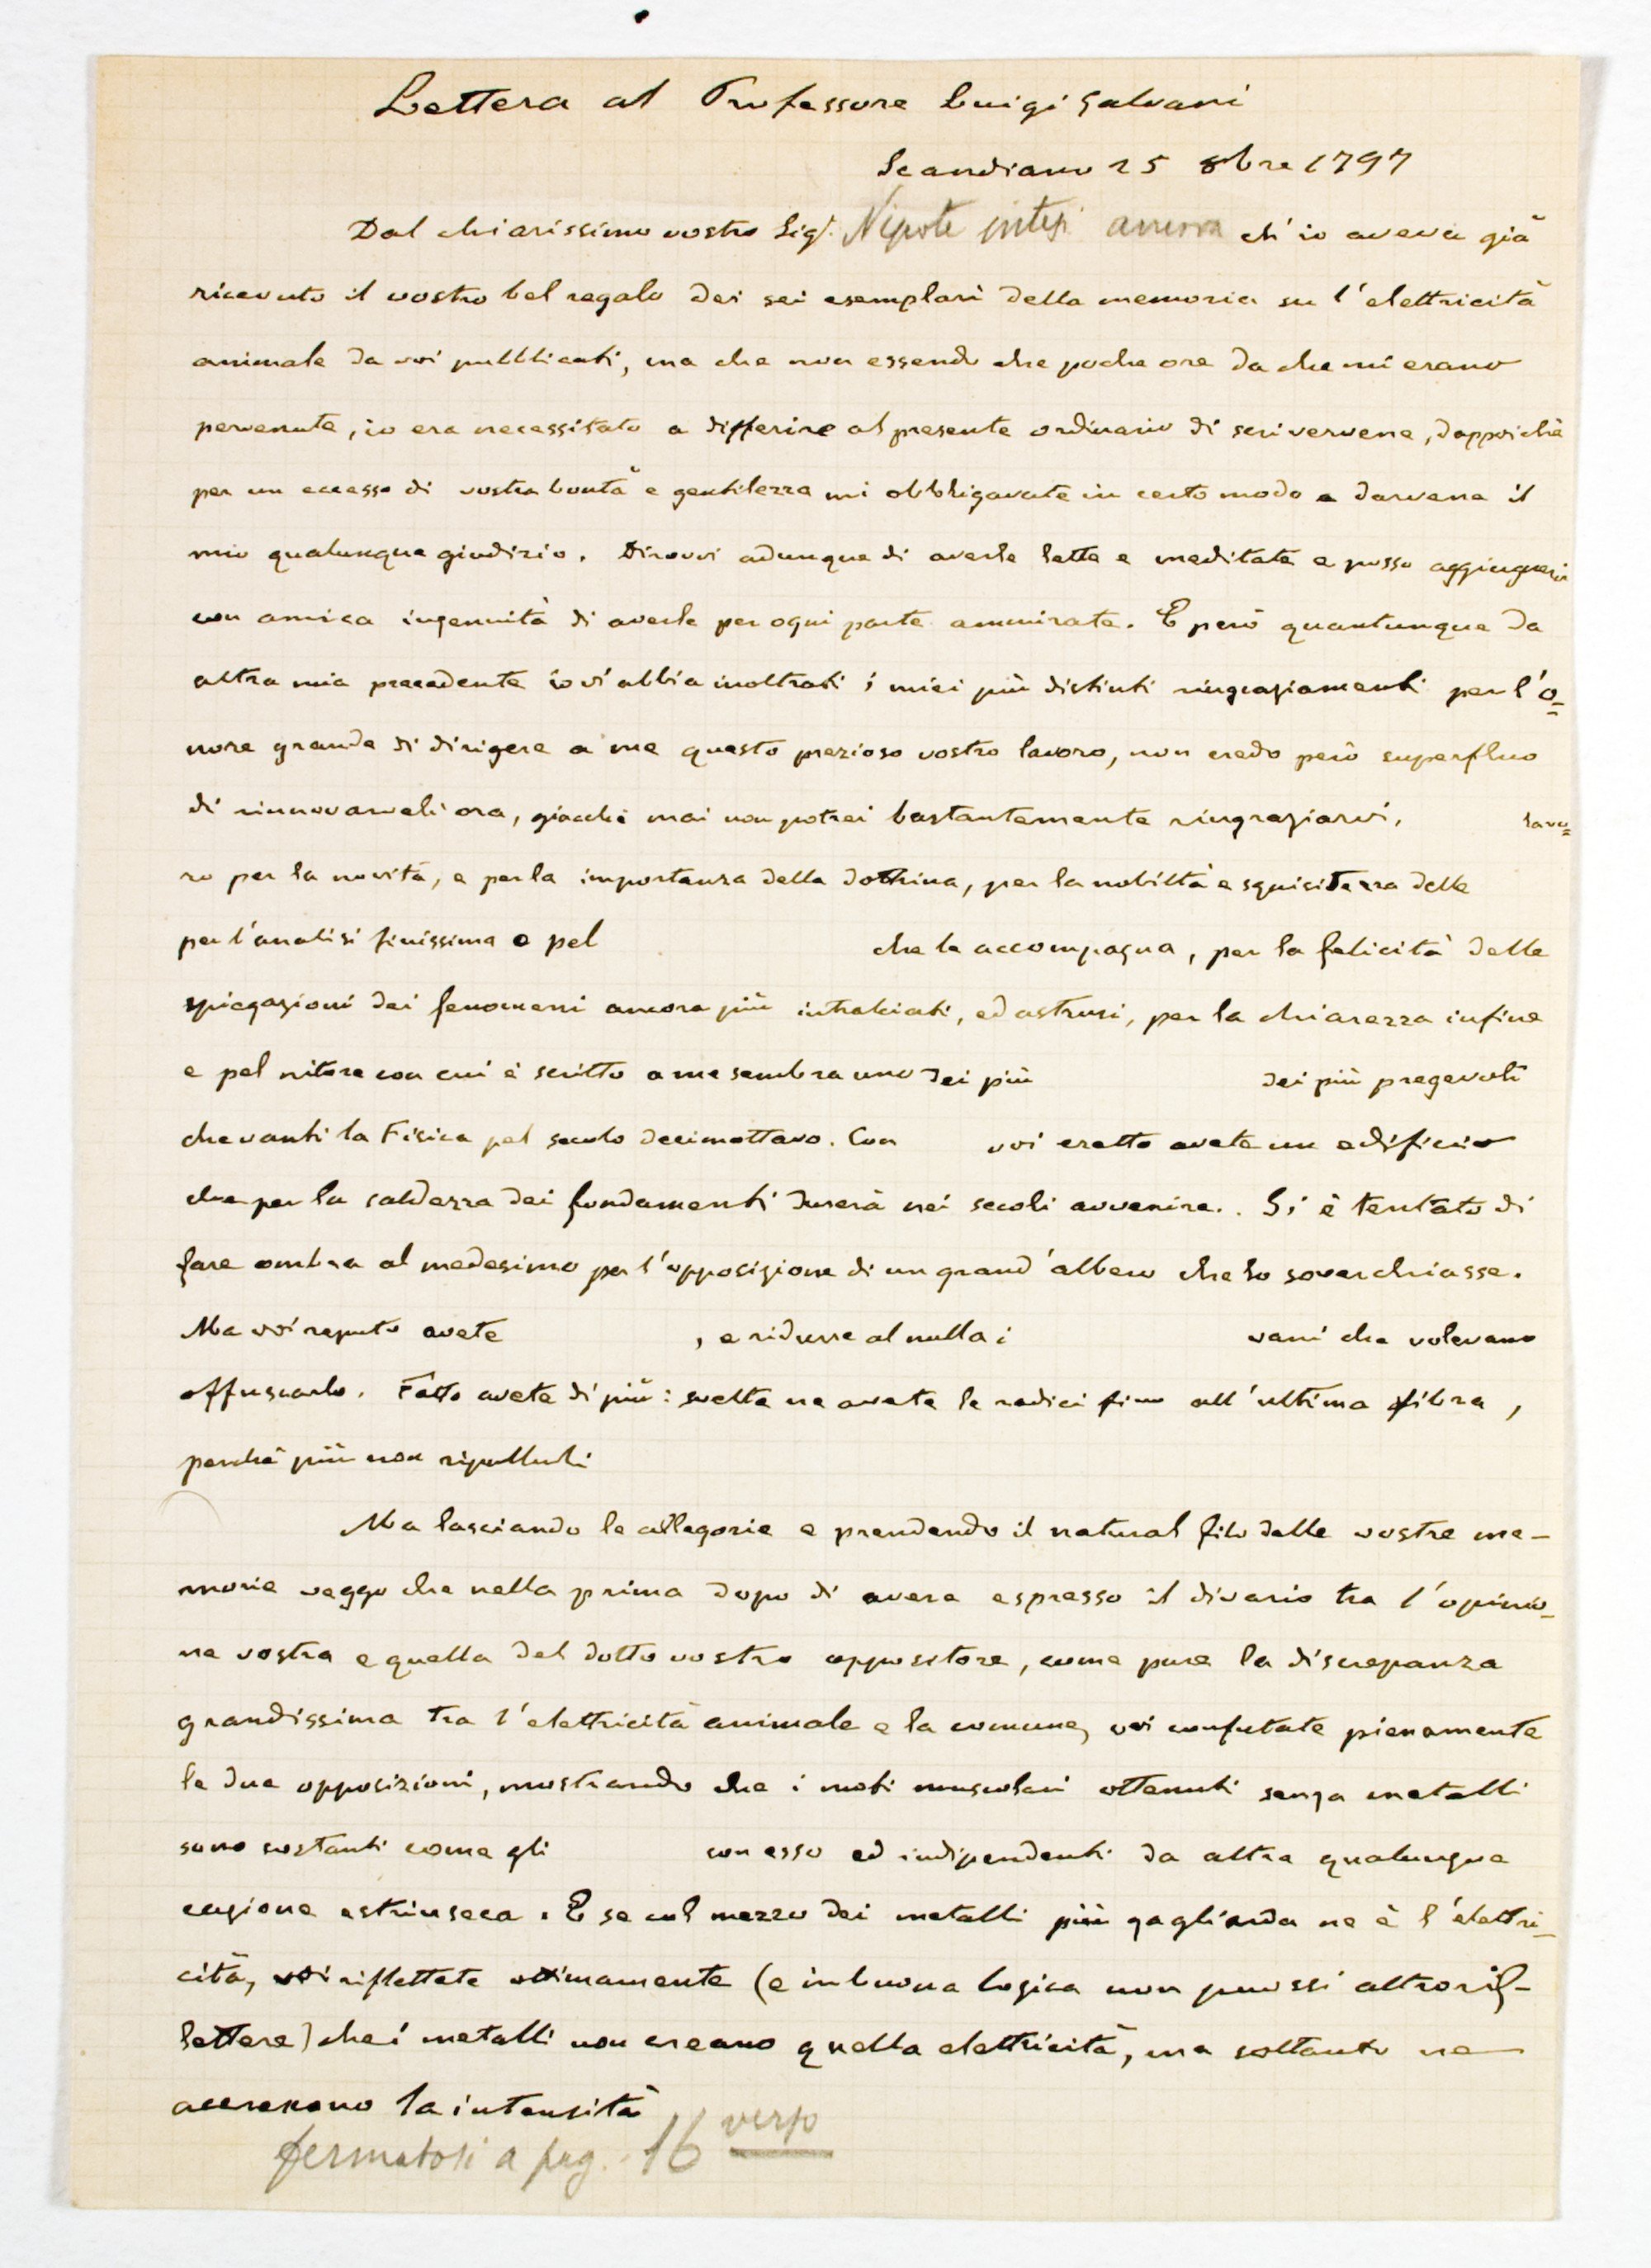 Lettera al Professore Luigi Galvani
Scandiano 25 8bre 1797
Dal chiarissimo vostro Sig.r Nipote intesi ch'io aveva già
ricevuto il vostro bel regalo dei sei esemplari della memoria su l'elettricità
animale da voi pubblicati, ma che non essendo che poche ore da che mi erano
pervenute, io era necessitato a differire al presente ordinario di scrivervene, dappoichè
per un eccesso di vostra bontà e gentilezza mi obbligavate in certo modo a darvene il
mio qualunque giudizio. Dirovvi adunque di averle lette e meditate e posso aggiugnervi
con amica ingenuità di averle per ogni parte ammirate. E però quantunque da
altra mia precedente io vi abbia inoltrati i miei più distinti ringraziamenti per l'o=
nore grande di dirigere a me questo prezioso vostro lavoro, non credo però superfluo
di rinnovarveli ora, giacchè mai non potrei bastantemente ringraziarvi, lavo=
ro per la novità, e per la importanza della dottrina, per la nobiltà e squisitezza delle
per l'analisi finissima e pel che le accompagna, per la felicità delle
spiegazioni dei fenomeni ancora più intralciati, ed astrusi, per la chiarezza infine
e pel nitore con cui è scritto a me sembra uno dei più dei più pregevoli
che vanti la Fisica pel secolo decimottavo. Con voi eretto avete un edificio
che per la saldezza dei fondamenti durerà nei secoli avvenire.. Si è tentato di
fare ombra al medesimo per l'opposizione di un grand'albero che lo soverchiasse.
Ma voi avete , e ridurre al nulla i vani che volevano
offuscarlo. Fatto avete di più: svelte ne avete le radici fino all'ultima fibra,
perchè più non ripulluli
Ma lasciando le allegorie e prendendo il natural filo delle vostre me-
morie veggo che nella prima dopo di avere espresso il divario tra l'opinio-
ne vostra e quella del dotto vostro oppositore, come pure la discrepanza
grandissima tra l'elettricità animale e la comune, voi confutate pienamente
le due opposizioni, mostrando che i moti muscolari ottenuti senza metalli
sono costanti come gli con esso ed indipendenti da altra qualunque
cagione estrinseca. E se col mezzo dei metalli più gagliarda ne è l'elettri-
cità, voi riflettete ottimamente (e in buona logica non puossi altro rif-
lettere) che i metalli non creano quella elettricità, ma soltanto ne
accrescono la intensità
fermatosi a pag. 16 verso